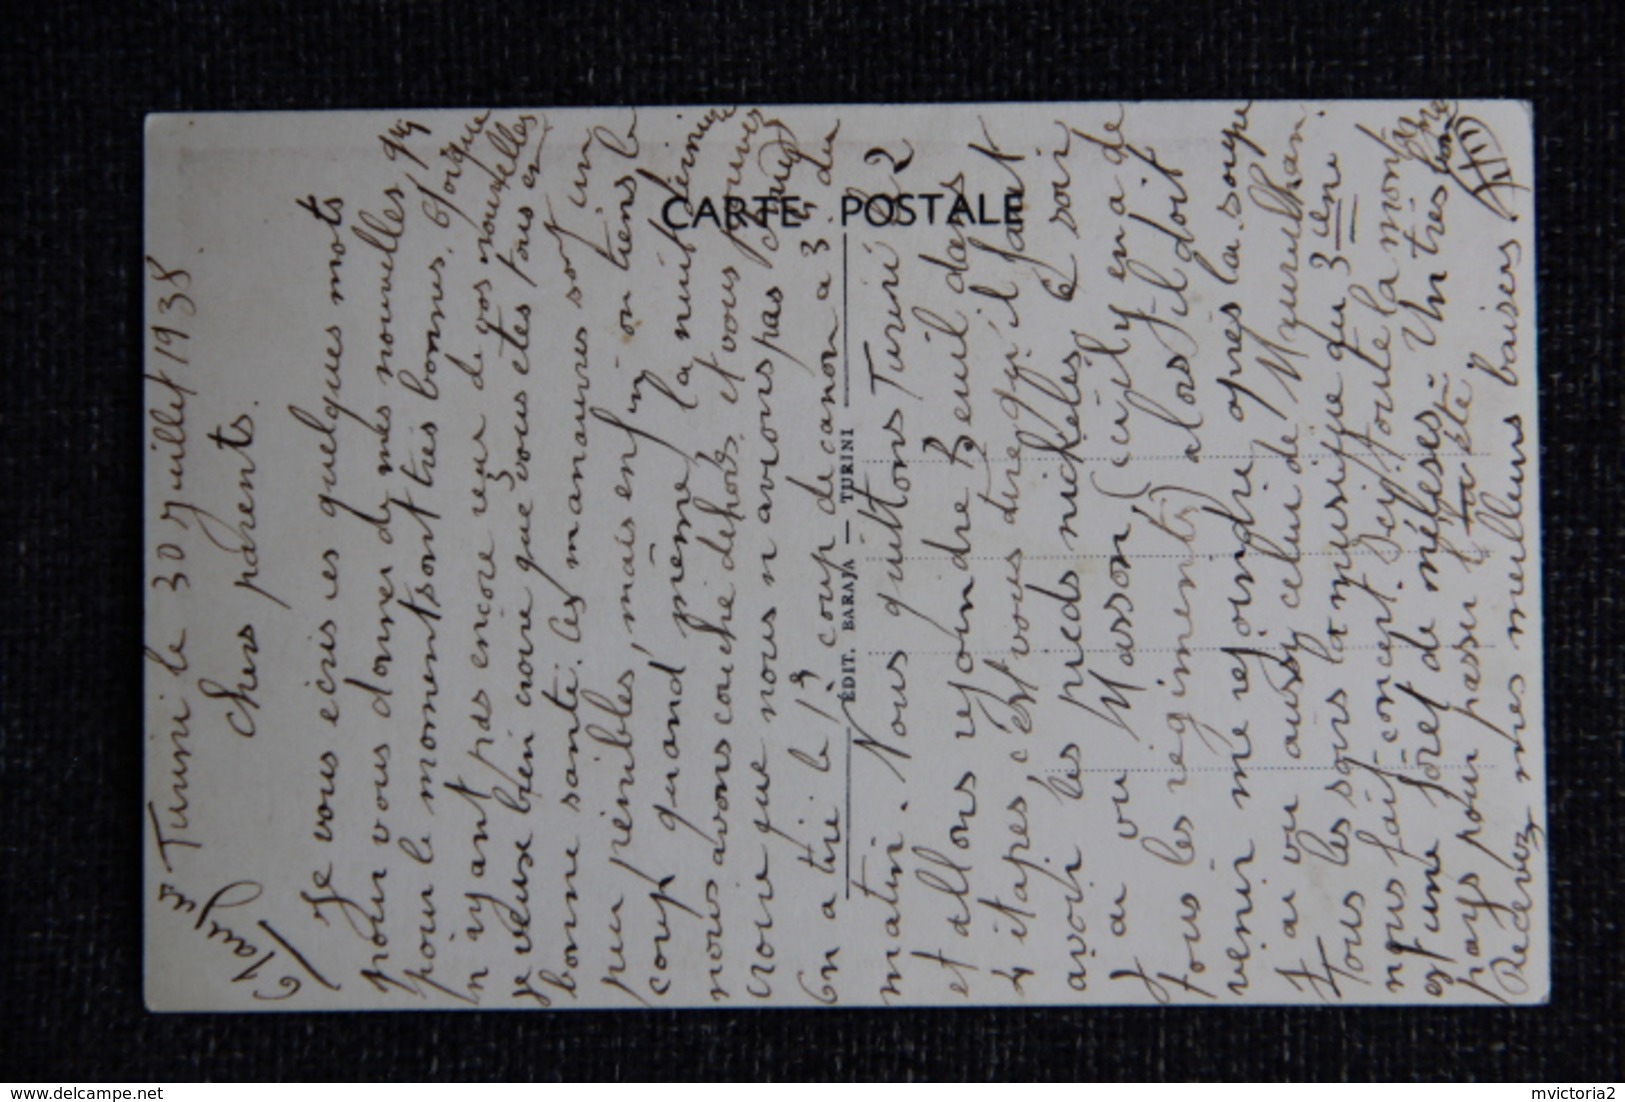 Turini le 30 juillet 1938
Chers parents.
Je vous écris ces quelques mots
pour vous donner de mes nouvelles qui
pour le moment sont très bonnes. Quoique
n'ayant pas encore reçu de vos nouvelles
je veux bien croire que vous êtes tous en
bonne santé. Les manœuvres sont un
peu pénibles, mais enfin on tiens le
coup quand même. La nuit dernière
nous avons couché dehors et vous pouvez
croire que nous n'avions pas chaud
On a tiré le 1er coup de canon à 3 h du
matin. Nous quittons Turini
et allons rejoindre Beuil dans
4 étapes, c'est vous dire qu'il faut
avoir les pieds nickelés. Ce soir
J'ai vu Masson (car il y en a de
tous les régiments) alors il doit
venir me rejoindre après la soupe
J'ai vu aussi celui de
Tous les soirs la musique du 3ème
nous fait concept. Ici toute la montagne
est une forêt de mélèses. Un très bon
pays pour passer l'été.
Recevez mes meilleurs baisers.
CARTE POSTALE
2
ÉDIT. BARAJA — TURINI
mvictoria2